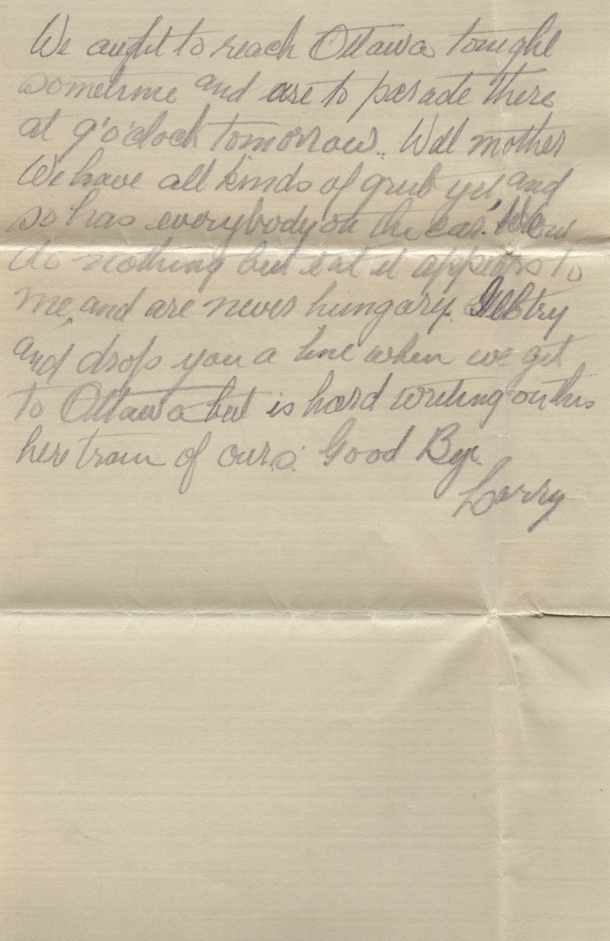 We aught to reach Ottawa tonight
sometime and are to parade there
at 9'o'clock tomorrow. Well mother
We have all kinds of grub yet and
so has everybody on the car. We
do nothing but eat it appears to
me, and are never hungary. I'll try
and drop you a line when we get
to Ottawa but is hard writing on this
here train of ours. Good Bye
Larry